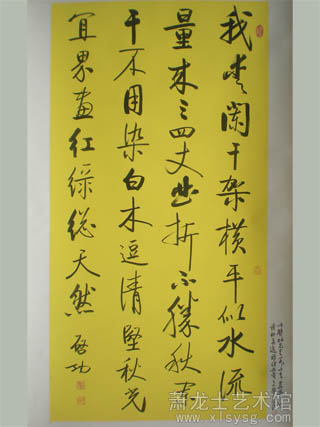 我爱阑干架横平似水流
量来三四丈曲折不胜秋
干不用染白木逗清坚秋光
宜界画红绿总天然 启功
萧龙士艺术馆
www.xlsysg.com